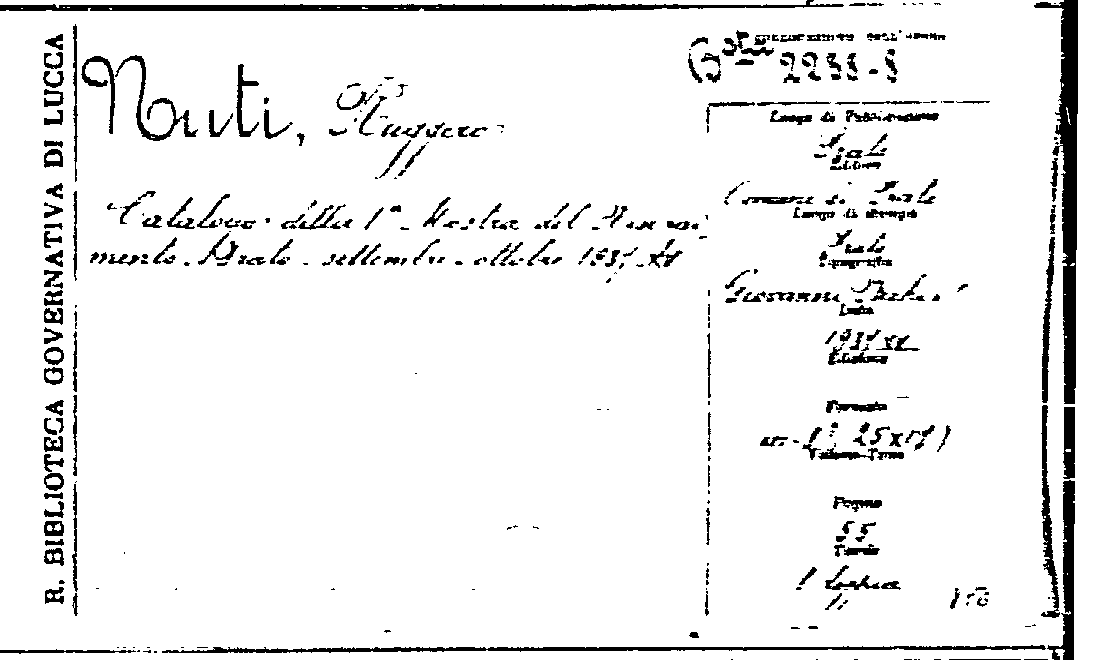 R. BIBLIOTECA GOVERNATIVA DI LUCCA
Nuti, Ruggero
Catalogo della 1ª Mostra del Rinasci
mento. Prato - settembre - ottobre 1937 XV
Luogo di Pubblicazione
Prato
Editore
Comune di Prato
Luogo di stampa
Prato
Tipografia
Giovanni
Data
1937 XV
Edizione
Formato
in-8º 25x17)
Volume-Tomo
Pagine
55
Tavole
1